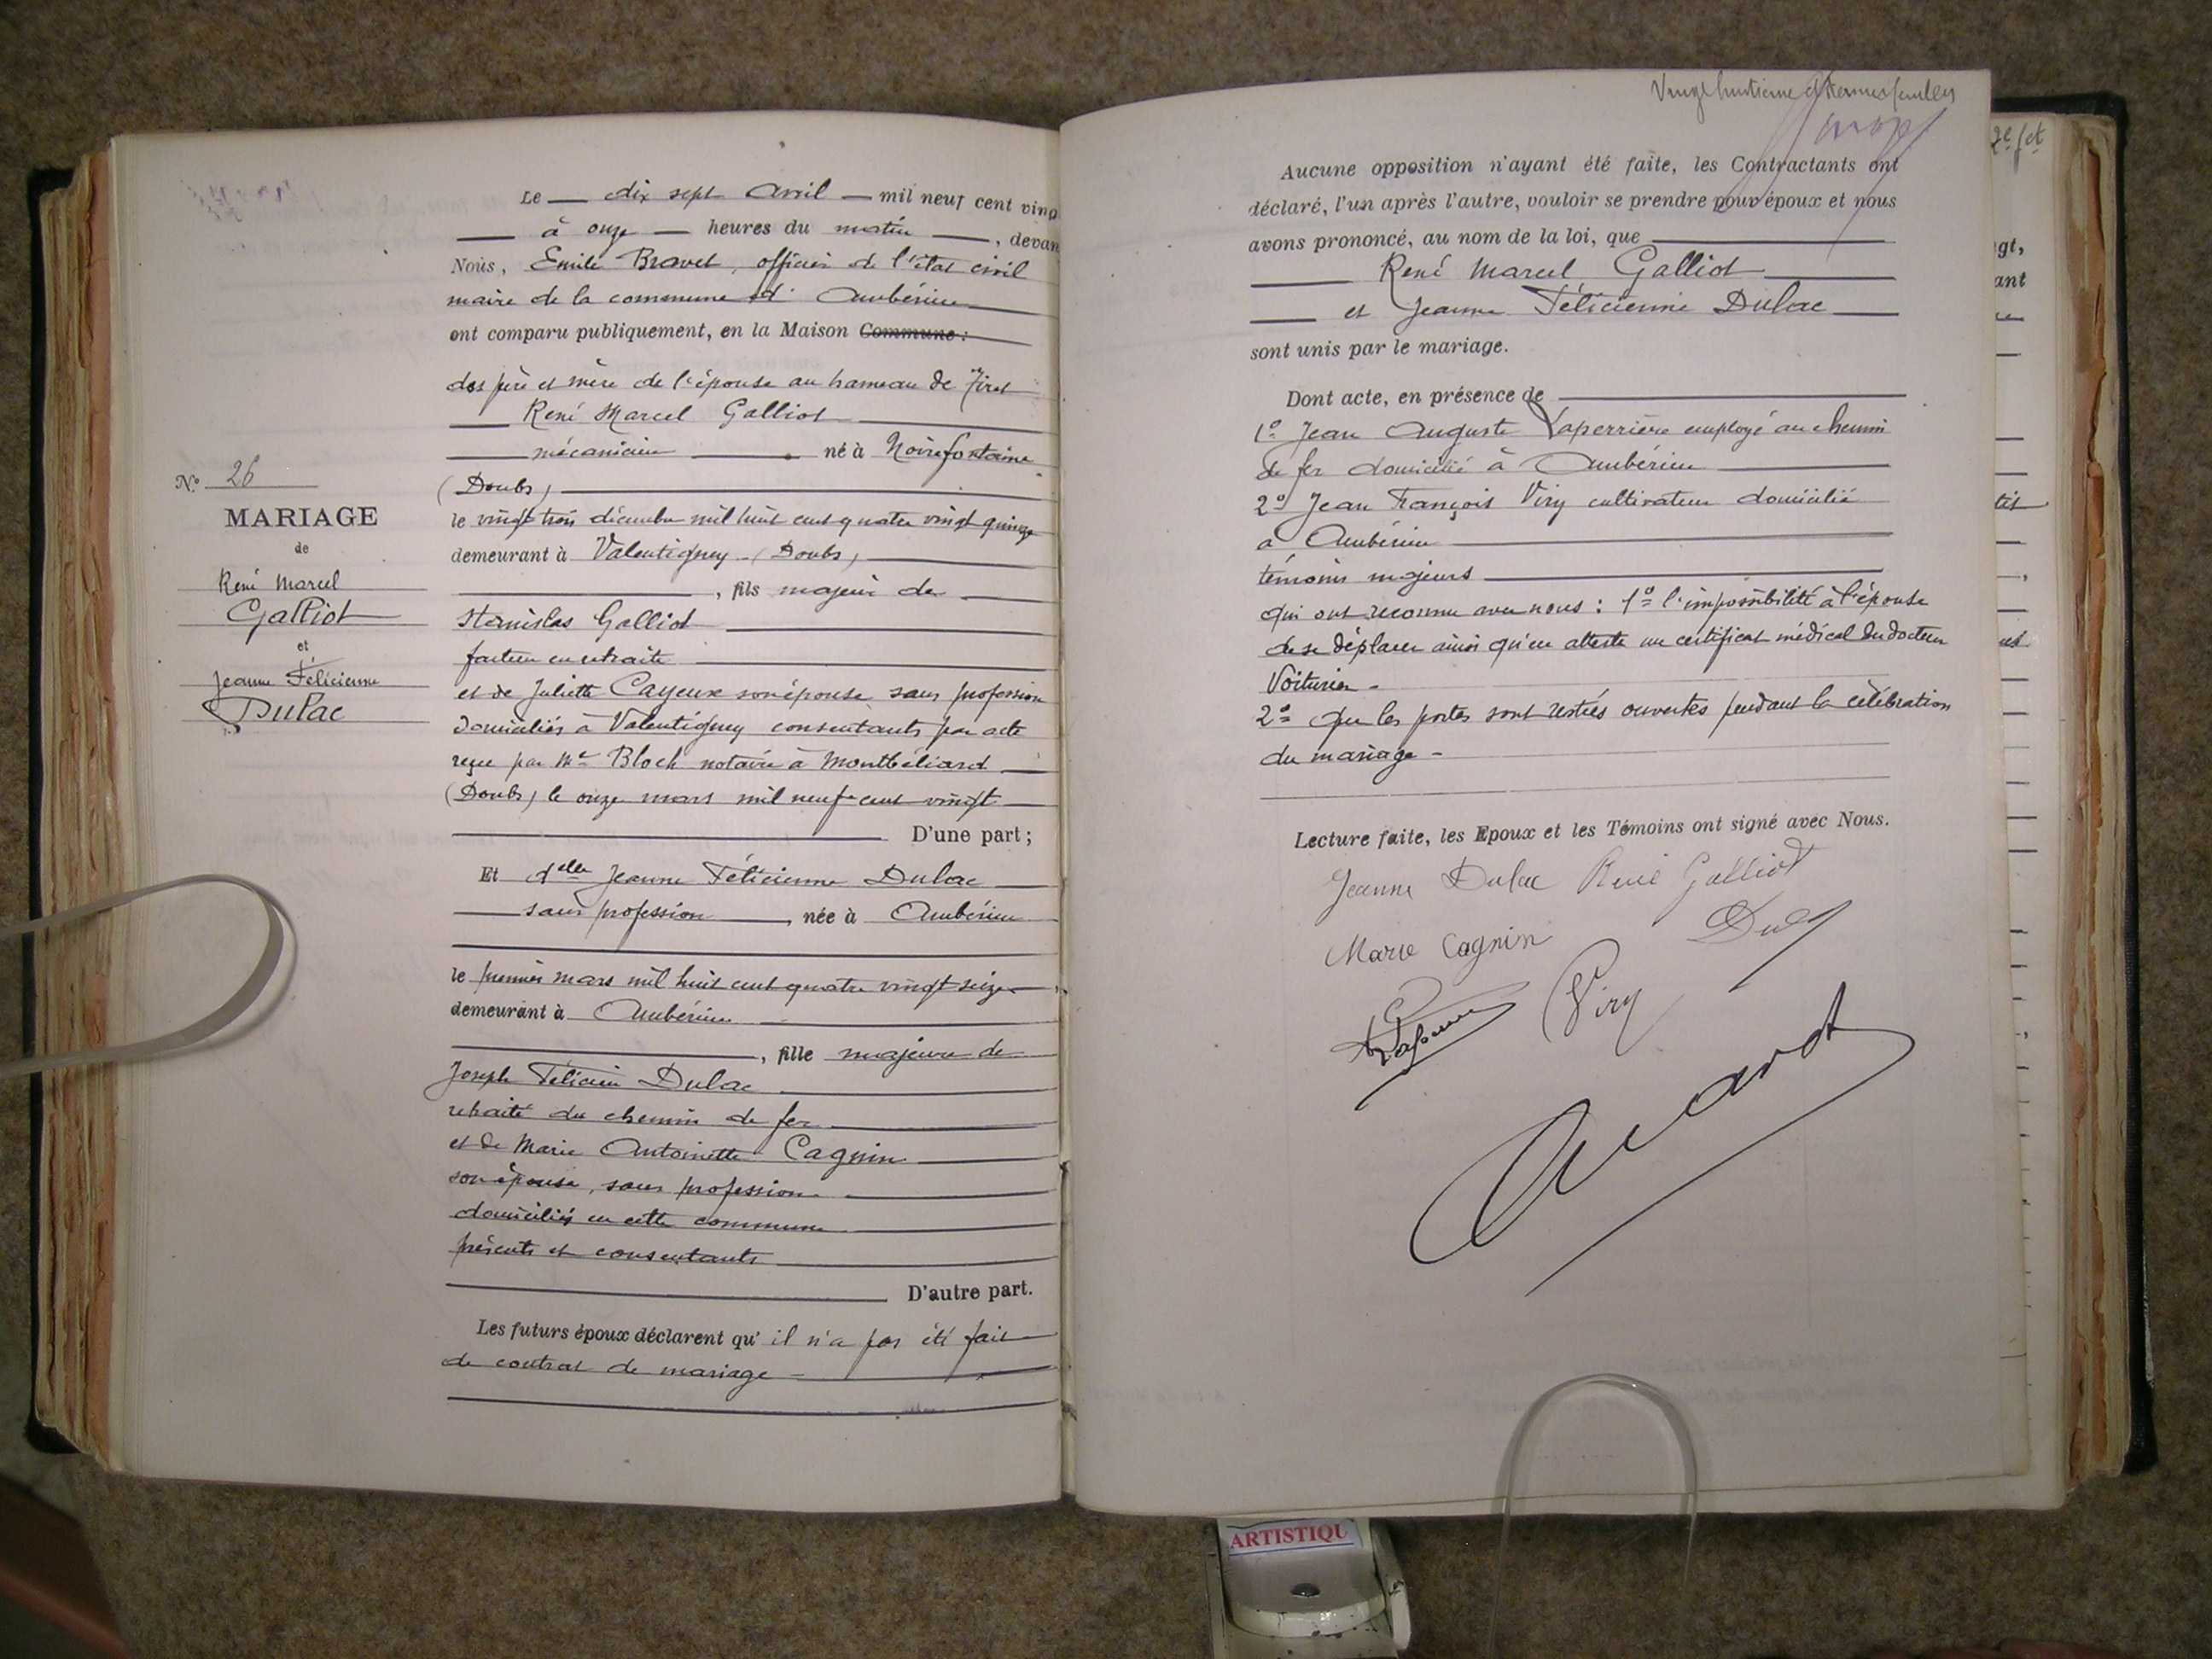 Le dix sept Avril mil neuf cent ving
à onze heures du matin, devan
Nous, Emile Bravet, officier de l'état civil
maire de la commune d' Ambérieu
ont comparu publiquement, en la Maison Commune:
des père et mère de l'épouse au hameau de Tiret
René Marcel Galliot
mécanicien né à Noirefontaine
(Doubs)
le vingt trois décembre mil huit cent quatre vingt quinze
demeurant à Valentigney (Doubs)
, fils majeur de
Stanislas Galliot
facteur en retraite
et de Juliette Cayeux son épouse sans profession
domiciliés à Valentigney consentants par acte
reçu par Me Bloch notaire à Montbéliard
(Doubs) le onze mars mil neuf cent vingt
D'une part;
Et delle Jeanne Félicienne Dulac
sans profession, née à Ambérieu
le premier mars mil huit cent quatre vingt seize
demeurant à Ambérieu
, fille majeure de
Joseph Félicien Dulac
retraité du chemin de fer
et de Marie Antoinette Cagnin
son épouse, sans profession
domiciliés en cette commune
présents et consentants
D'autre part.
Les futurs époux déclarent qu' il n'a pas été fait
de contrat de mariage
N° 26
MARIAGE
de
René Marcel
Galliot
et
Jeanne Félicienne
Dulac
Vingt huitième et
Aucune opposition n'ayant été faite, les Contractants ont
déclaré, l'un après l'autre, vouloir se prendre pour époux et nous
avons prononcé, au nom de la loi, que
René Marcel Galliot
et Jeanne Félicienne Dulac
sont unis par le mariage.
Dont acte, en présence de
1° Jean Auguste Laperrière employé au chemin
de fer domicilié à Ambérieu
2° Jean François Viry cultivateur domicilié
à Ambérieu
témoins majeurs
qui ont reconnu avec nous: 1° l'impossibilité à l'épouse
de se déplacer ainsi qu'en atteste un certificat médical du docteur
Voiturier -
2° que les portes sont restées ouvertes pendant la célébration
du mariage -
Lecture faite, les Epoux et les Témoins ont signé avec Nous.
Jeanne Dulac René Galliot
Marie Cagnin
Viry
gt,
ant
ARTISTIQU